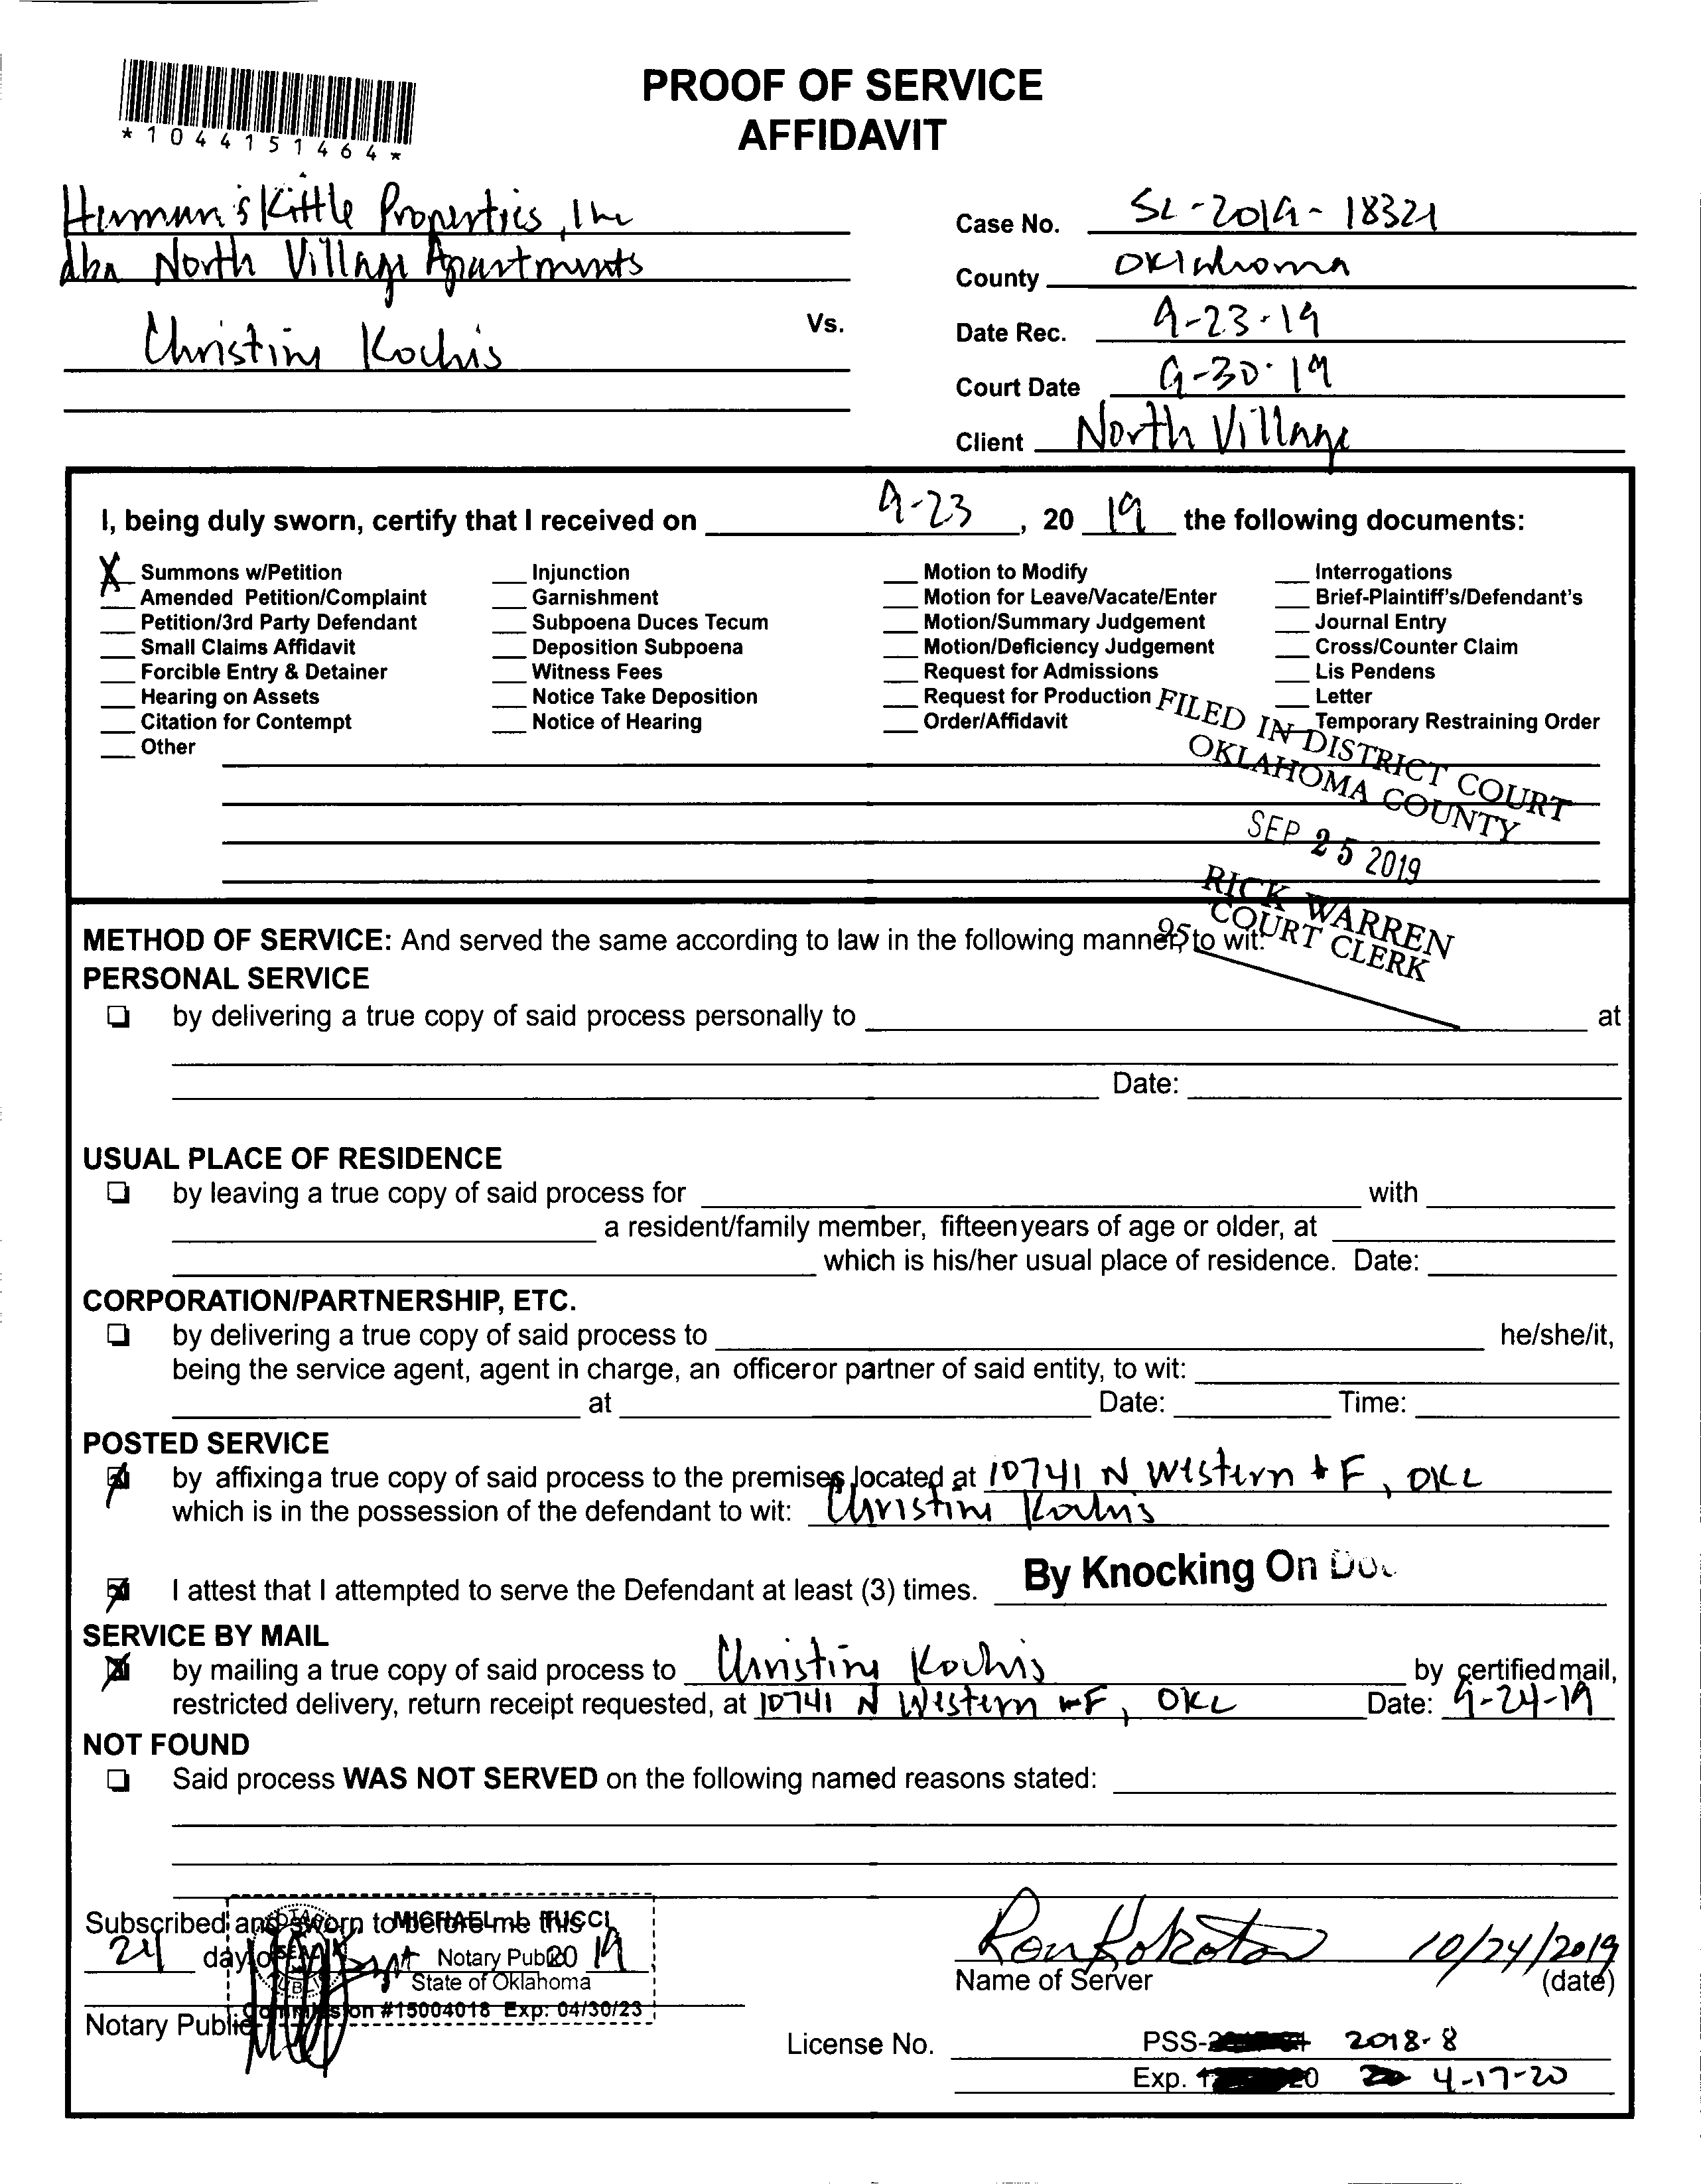 PROOF OF SERVICE
AFFIDAVIT
*1044151464*
Herman & Kittle Properties, Inc
dba North Village Apartments
Vs.
Christine Kochis
Case No. SC-2019-18321
County Oklahoma
Date Rec. 9-23-19
Court Date 9-30-19
Client North Village
I, being duly sworn, certify that I received on 9-23, 20 19 the following documents:
X Summons w/Petition
Amended Petition/Complaint
Petition/3rd Party Defendant
Small Claims Affidavit
Forcible Entry & Detainer
Hearing on Assets
Citation for Contempt
Other
Injunction
Garnishment
Subpoena Duces Tecum
Deposition Subpoena
Witness Fees
Notice Take Deposition
Notice of Hearing
Motion to Modify
Motion for Leave/Vacate/Enter
Motion/Summary Judgement
Motion/Deficiency Judgement
Request for Admissions
Request for Production
Order/Affidavit
Interrogations
Brief-Plaintiff's/Defendant's
Journal Entry
Cross/Counter Claim
Lis Pendens
Letter
Temporary Restraining Order
FILED IN DISTRICT COURT
OKLAHOMA COUNTY
SEP 25 2019
RICK WARREN
COURT CLERK
95
METHOD OF SERVICE: And served the same according to law in the following manner, to wit:
PERSONAL SERVICE
by delivering a true copy of said process personally to at
Date:
USUAL PLACE OF RESIDENCE
by leaving a true copy of said process for with
a resident/family member, fifteen years of age or older, at
which is his/her usual place of residence. Date:
CORPORATION/PARTNERSHIP, ETC.
by delivering a true copy of said process to he/she/it,
being the service agent, agent in charge, an officeror partner of said entity, to wit:
at Date: Time:
POSTED SERVICE
by affixing a true copy of said process to the premises located at 10741 N Western # F, OKC
which is in the possession of the defendant to wit: Christine Kochis
I attest that I attempted to serve the Defendant at least (3) times. By Knocking On
SERVICE BY MAIL
by mailing a true copy of said process to Christine Kochis by certified mail,
restricted delivery, return receipt requested, at 10741 N Western # F, OKC Date: 9-24-19
NOT FOUND
Said process WAS NOT SERVED on the following named reasons stated:
Subscribed and sworn to before me this
24 day of Sept 20 19
Notary Public
MICHAEL L TUCCI
Notary Public
State of Oklahoma
Commission #15004018 Exp: 04/30/23
10/24/2019
Name of Server (date)
License No. PSS- 2018-8
Exp. 4-17-20